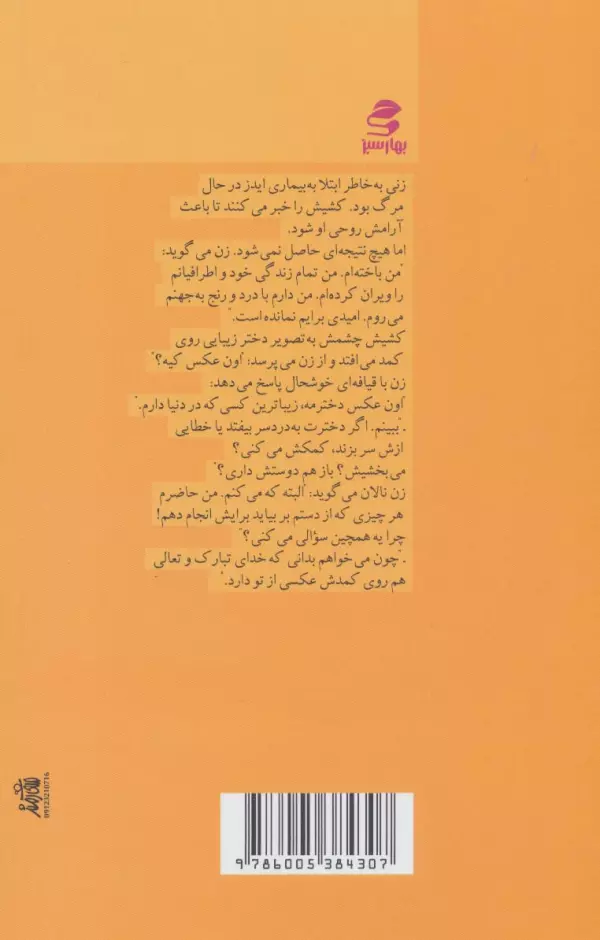 بهار سبز
زنی به‌خاطر ابتلا به‌بیماری ایدز در حال
مرگ بود. کشیش را خبر می‌کنند تا باعث
آرامش روحی او شود.
اما هیچ نتیجه‌ای حاصل نمی‌شود. زن می‌گوید:
"من باخته‌ام. من تمام زندگی خود و اطرافیانم
را ویران کرده‌ام. من دارم با درد و رنج به‌جهنم
می‌روم. امیدی برایم نمانده است."
کشیش چشمش به‌تصویر دختر زیبایی روی
کمد می‌افتد و از زن می‌پرسد: "اون عکس کیه؟"
زن با قیافه‌ای خوشحال پاسخ می‌دهد:
"اون عکس دخترمه، زیباترین کسی که در دنیا دارم."
ـ "ببینم. اگر دخترت به‌دردسر بیفتد یا خطایی
ازش سر بزند، کمکش می‌کنی؟
می‌بخشیش؟ باز هم دوستش داری؟"
زن نالان می‌گوید: "البته که می‌کنم. من حاضرم
هر چیزی که از دستم بر بیاید برایش انجام دهم!
چرا یه همچین سؤالی می‌کنی؟"
ـ "چون می‌خواهم بدانی که خدای تبارک و تعالی
هم روی کمدش عکسی از تو دارد."
09123218716
9 786005 384307